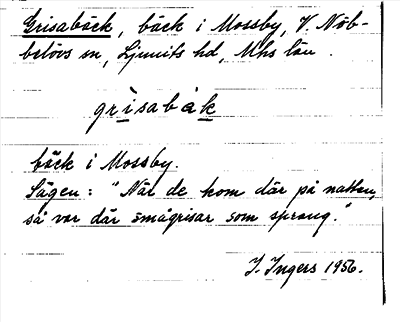 Grisabäck, bäck i Mossby, V. Nöb-
belövs sn, Ljunits hd, Mhs län.
grisabák
bäck i Mossby.
Sägen: "När de kom där på natten,
så var där smågrisar som sprang."
I. Ingers 1956.